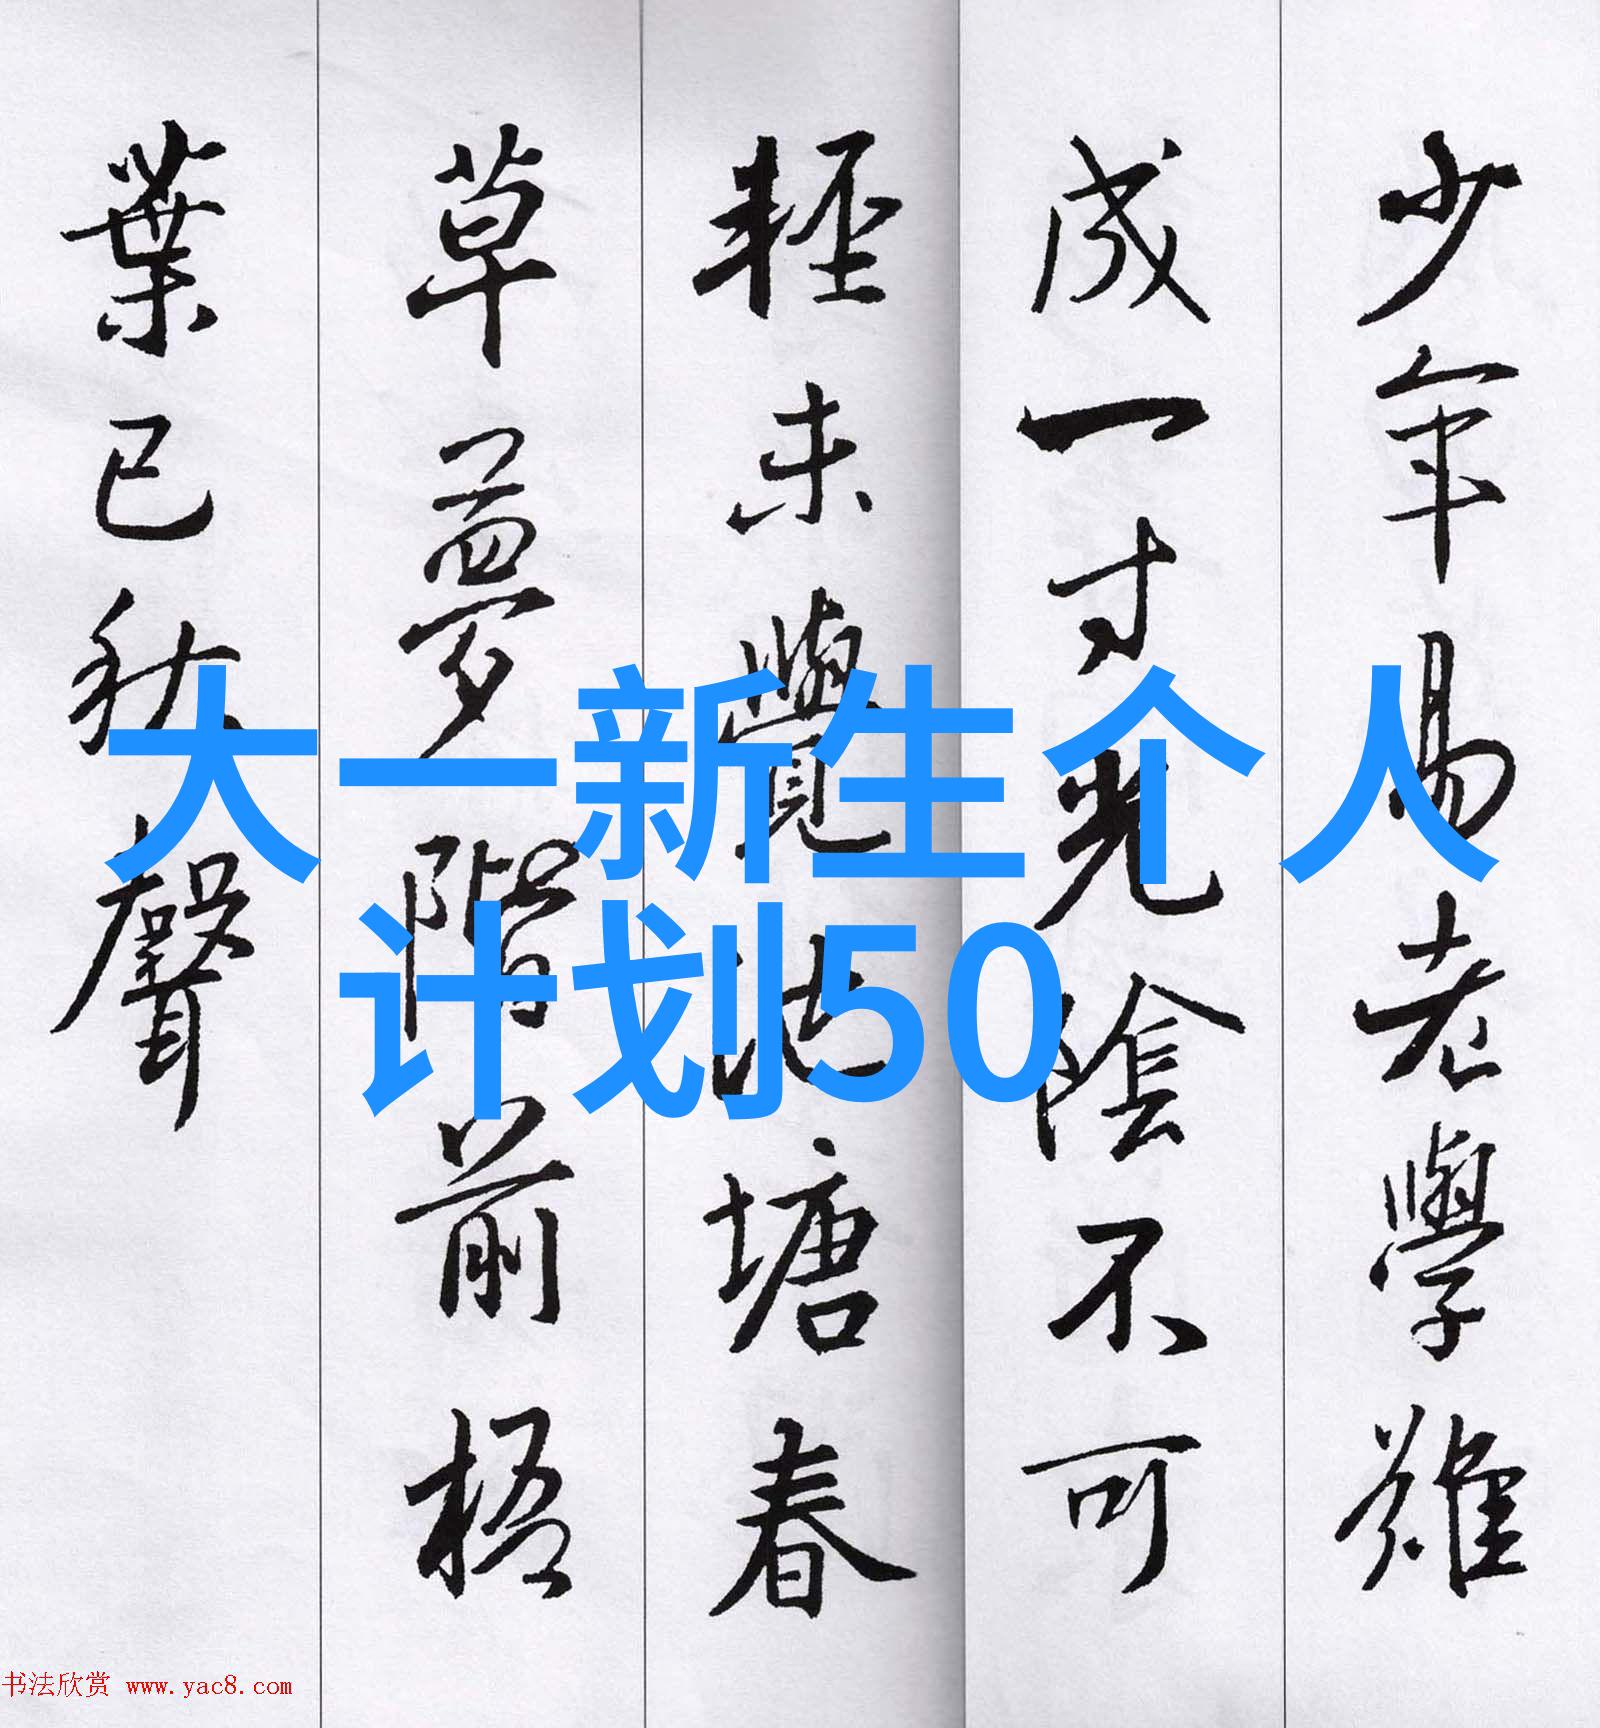 少年易老學難
成一寸光陰不可
輕未覺池塘春
草夢階前梧
葉已秋聲
大一新生个人
计划50
书法欣赏 www.yac8.com